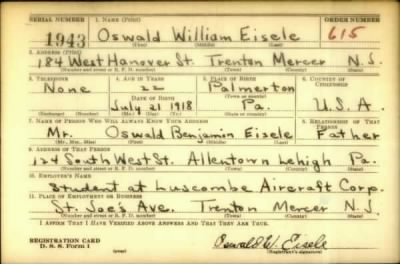 SERIAL NUMBER 1. NAME (Print) ORDER NUMBER
1943 Oswald William Eisele 615
(First) (Middle) (Last)
2. ADDRESS (Print)
184 West Hanover St. Trenton Mercer N.J.
(Number and street or R. F. D. number) (Town) (County) (State)
3. TELEPHONE 4. AGE IN YEARS 5. PLACE OF BIRTH 6. COUNTRY OF CITIZENSHIP
None 22 Palmerton
DATE OF BIRTH (Town or county)
July 21 1918 Pa. U.S.A.
(Exchange) (Number) (Mo.) (Day) (Yr.) (State or country)
7. NAME OF PERSON WHO WILL ALWAYS KNOW YOUR ADDRESS 8. RELATIONSHIP OF THAT PERSON
Mr. Oswald Benjamin Eisele Father
(Mr., Mrs., Miss) (First) (Middle) (Last)
9. ADDRESS OF THAT PERSON
124 South West St. Allentown Lehigh Pa.
(Number and street or R. F. D. number) (Town) (County) (State)
10. EMPLOYER'S NAME
Student at Luscombe Aircraft Corp.
11. PLACE OF EMPLOYMENT OR BUSINESS
St. Joe's Ave. Trenton Mercer N.J.
(Number and street or R. F. D. number) (Town) (County) (State)
I AFFIRM THAT I HAVE VERIFIED ABOVE ANSWERS AND THAT THEY ARE TRUE.
REGISTRATION CARD
D. S. S. Form 1 (over) Oswald W. Eisele
(Registrant's signature)